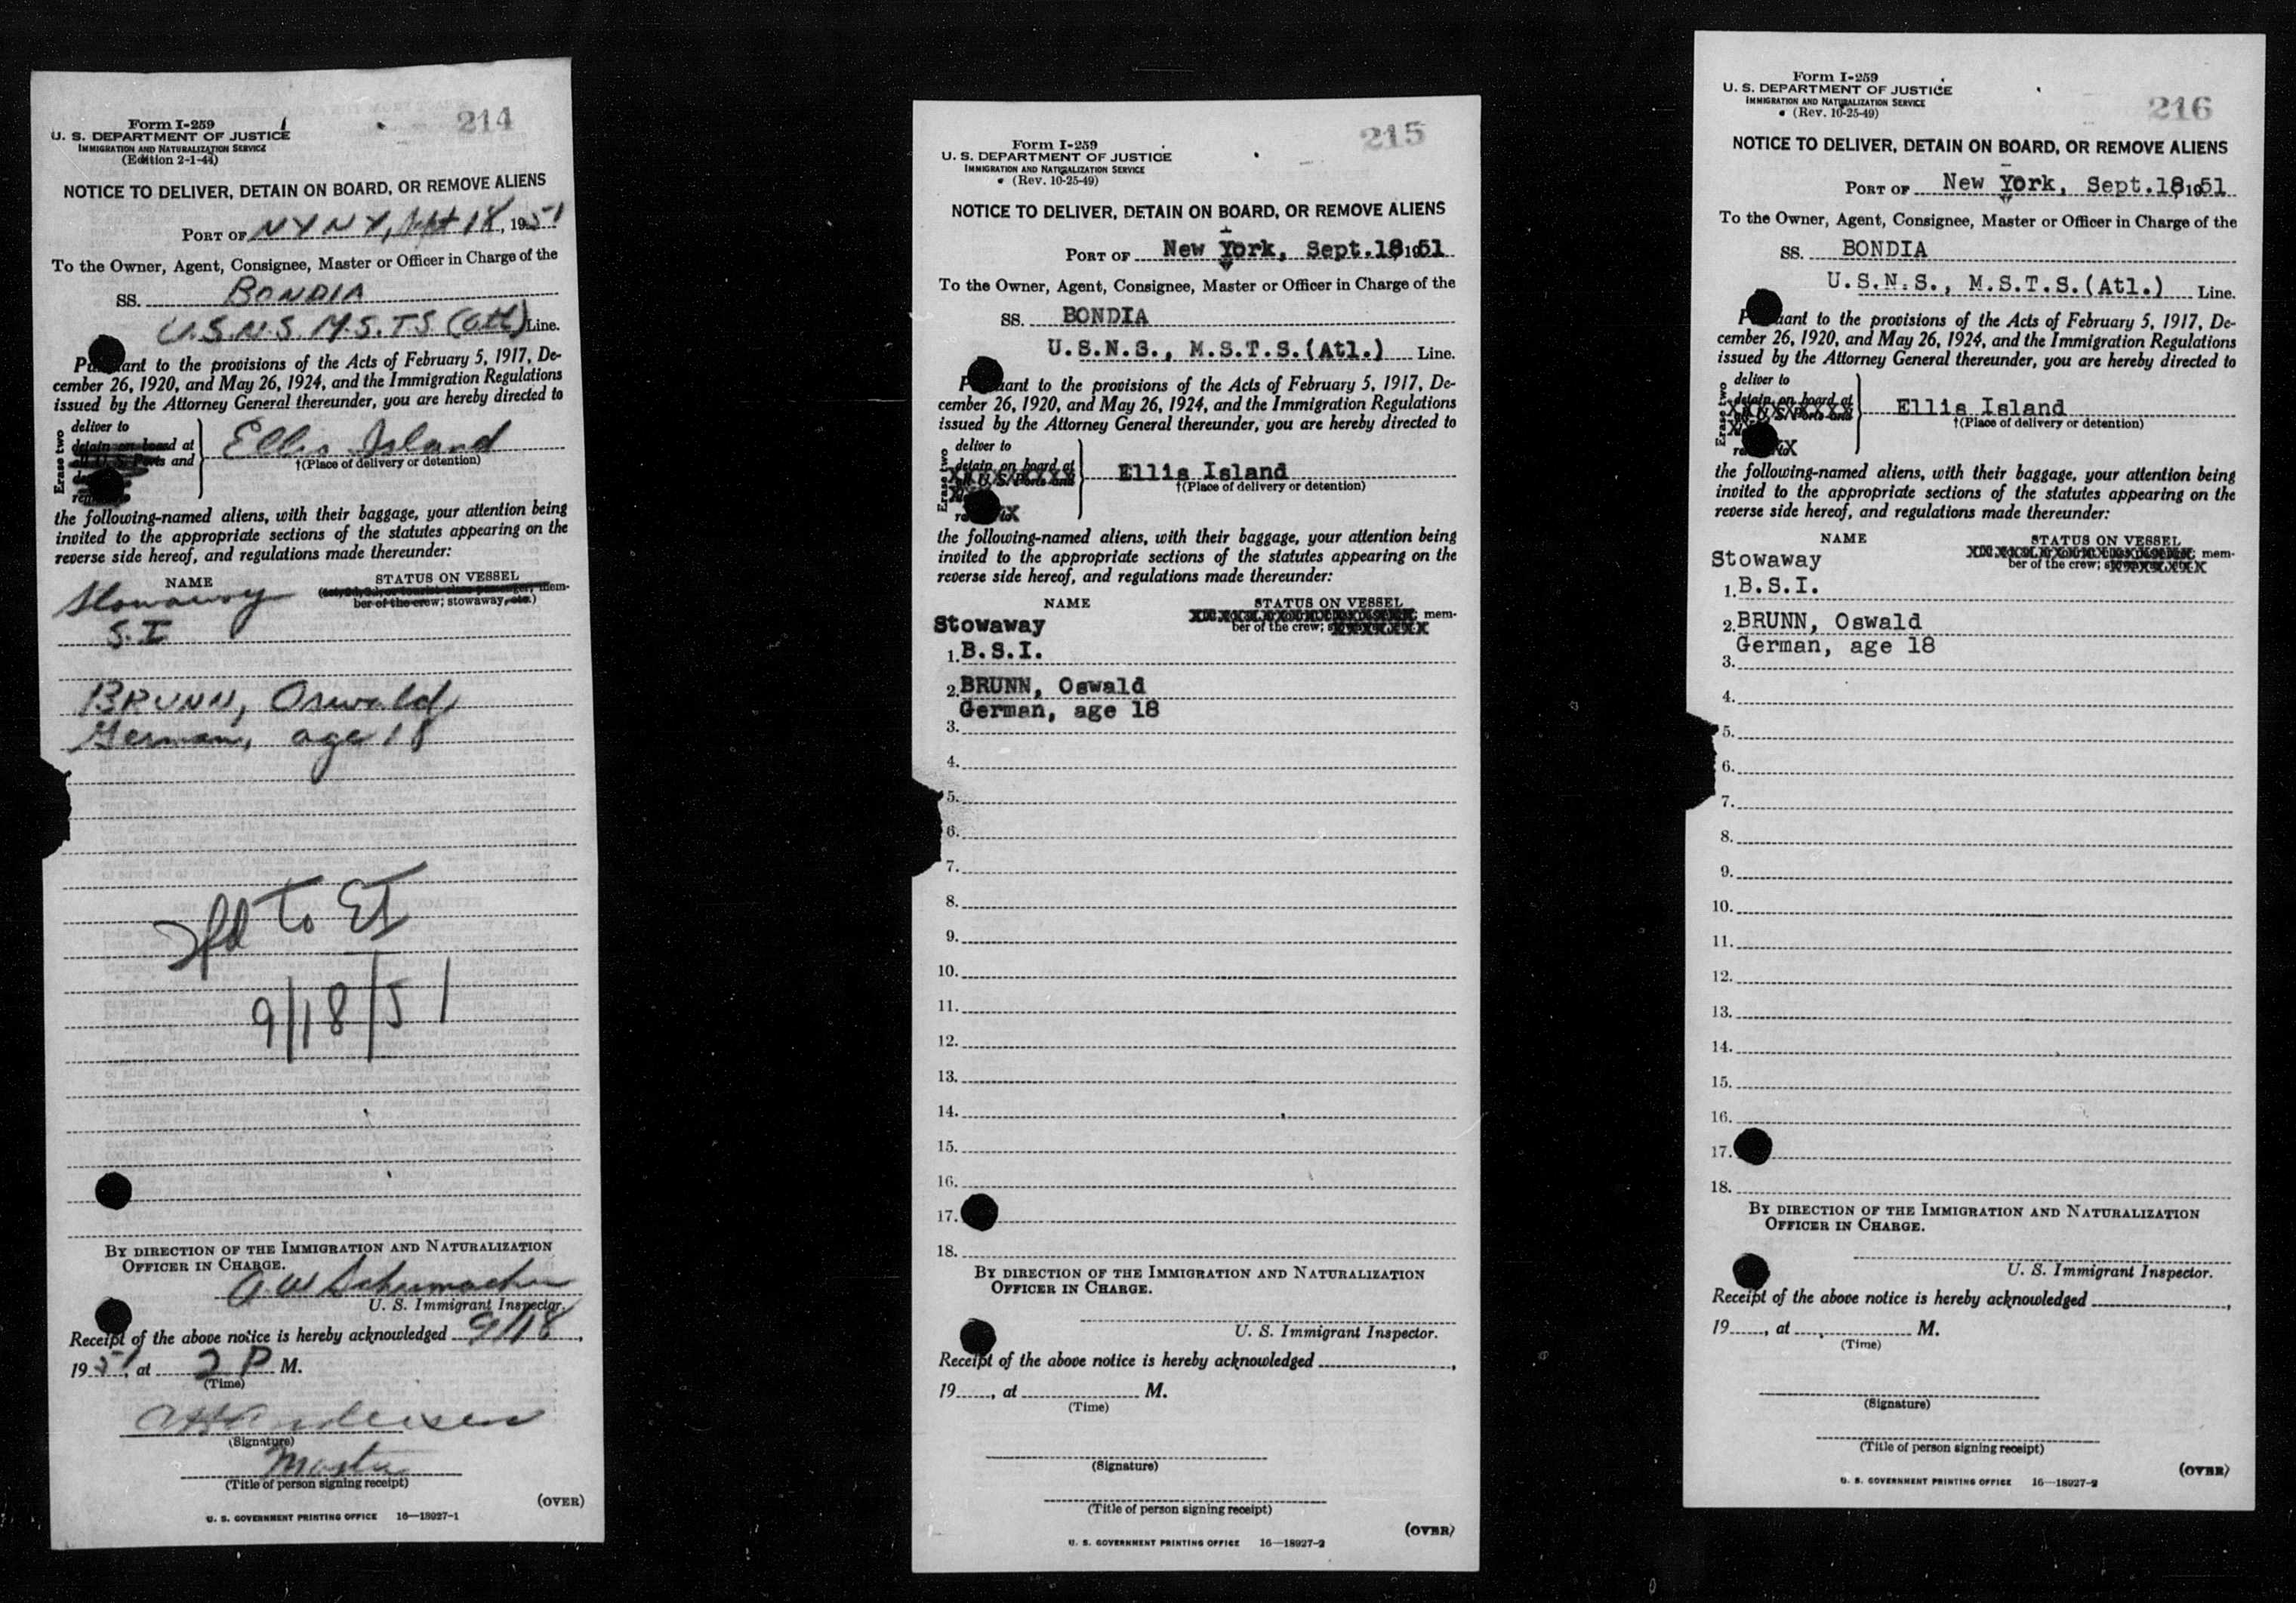 214
Form I-259
U. S. DEPARTMENT OF JUSTICE
IMMIGRATION AND NATURALIZATION SERVICE
(Edition 2-1-44)
NOTICE TO DELIVER, DETAIN ON BOARD, OR REMOVE ALIENS
PORT OF N Y N Y, Sept 18, 1951
To the Owner, Agent, Consignee, Master or Officer in Charge of the
SS. BONDIA
U.S.N.S. M.S.T.S (Atl) Line.
Pursuant to the provisions of the Acts of February 5, 1917, De-
cember 26, 1920, and May 26, 1924, and the Immigration Regulations
issued by the Attorney General thereunder, you are hereby directed to
Erase two
deliver to
detain on board at
all U. S. Ports and
Ellis Island
†(Place of delivery or detention)
the following-named aliens, with their baggage, your attention being
invited to the appropriate sections of the statutes appearing on the
reverse side hereof, and regulations made thereunder:
NAME STATUS ON VESSEL
(1st, 2d, 3d, or tourist class passenger; mem-
ber of the crew; stowaway, etc.)
Stowaway
S.I
BRUNN, Oswald,
German, age 18
Tfd to EI
9/18/51
BY DIRECTION OF THE IMMIGRATION AND NATURALIZATION
OFFICER IN CHARGE.
A. W Schumacher
U. S. Immigrant Inspector.
Receipt of the above notice is hereby acknowledged 9/18,
1951, at 2 P M.
(Time)
Andersen
(Signature)
Master
(Title of person signing receipt)
(OVER)
U. S. GOVERNMENT PRINTING OFFICE 16—18927-1
215
Form I-259
U. S. DEPARTMENT OF JUSTICE
IMMIGRATION AND NATURALIZATION SERVICE
(Rev. 10-25-49)
NOTICE TO DELIVER, DETAIN ON BOARD, OR REMOVE ALIENS
PORT OF New York, Sept.18, 1951
To the Owner, Agent, Consignee, Master or Officer in Charge of the
SS. BONDIA
U.S.N.S., M.S.T.S.(Atl.) Line.
Pursuant to the provisions of the Acts of February 5, 1917, De-
cember 26, 1920, and May 26, 1924, and the Immigration Regulations
issued by the Attorney General thereunder, you are hereby directed to
Erase two
deliver to
detain on board at
all U. S. Ports and
Ellis Island
†(Place of delivery or detention)
the following-named aliens, with their baggage, your attention being
invited to the appropriate sections of the statutes appearing on the
reverse side hereof, and regulations made thereunder:
NAME STATUS ON VESSEL
mem-
ber of the crew;
Stowaway
1. B.S.I.
2. BRUNN, Oswald
German, age 18
3.
4.
5.
6.
7.
8.
9.
10.
11.
12.
13.
14.
15.
16.
17.
18.
BY DIRECTION OF THE IMMIGRATION AND NATURALIZATION
OFFICER IN CHARGE.
U. S. Immigrant Inspector.
Receipt of the above notice is hereby acknowledged
19, at M.
(Time)
(Signature)
(Title of person signing receipt)
(OVER)
U. S. GOVERNMENT PRINTING OFFICE 16—18927-2
216
Form I-259
U. S. DEPARTMENT OF JUSTICE
IMMIGRATION AND NATURALIZATION SERVICE
(Rev. 10-25-49)
NOTICE TO DELIVER, DETAIN ON BOARD, OR REMOVE ALIENS
PORT OF New York, Sept.18, 1951
To the Owner, Agent, Consignee, Master or Officer in Charge of the
SS. BONDIA
U.S.N.S., M.S.T.S.(Atl.) Line.
Pursuant to the provisions of the Acts of February 5, 1917, De-
cember 26, 1920, and May 26, 1924, and the Immigration Regulations
issued by the Attorney General thereunder, you are hereby directed to
Erase two
deliver to
detain on board at
all U. S. Ports and
Ellis Island
†(Place of delivery or detention)
the following-named aliens, with their baggage, your attention being
invited to the appropriate sections of the statutes appearing on the
reverse side hereof, and regulations made thereunder:
NAME STATUS ON VESSEL
mem-
ber of the crew;
Stowaway
1. B.S.I.
2. BRUNN, Oswald
German, age 18
3.
4.
5.
6.
7.
8.
9.
10.
11.
12.
13.
14.
15.
16.
17.
18.
BY DIRECTION OF THE IMMIGRATION AND NATURALIZATION
OFFICER IN CHARGE.
U. S. Immigrant Inspector.
Receipt of the above notice is hereby acknowledged
19, at M.
(Time)
(Signature)
(Title of person signing receipt)
(OVER)
U. S. GOVERNMENT PRINTING OFFICE 16—18927-2